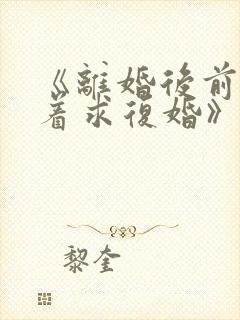 《離婚後前
着求復婚》
黎奎